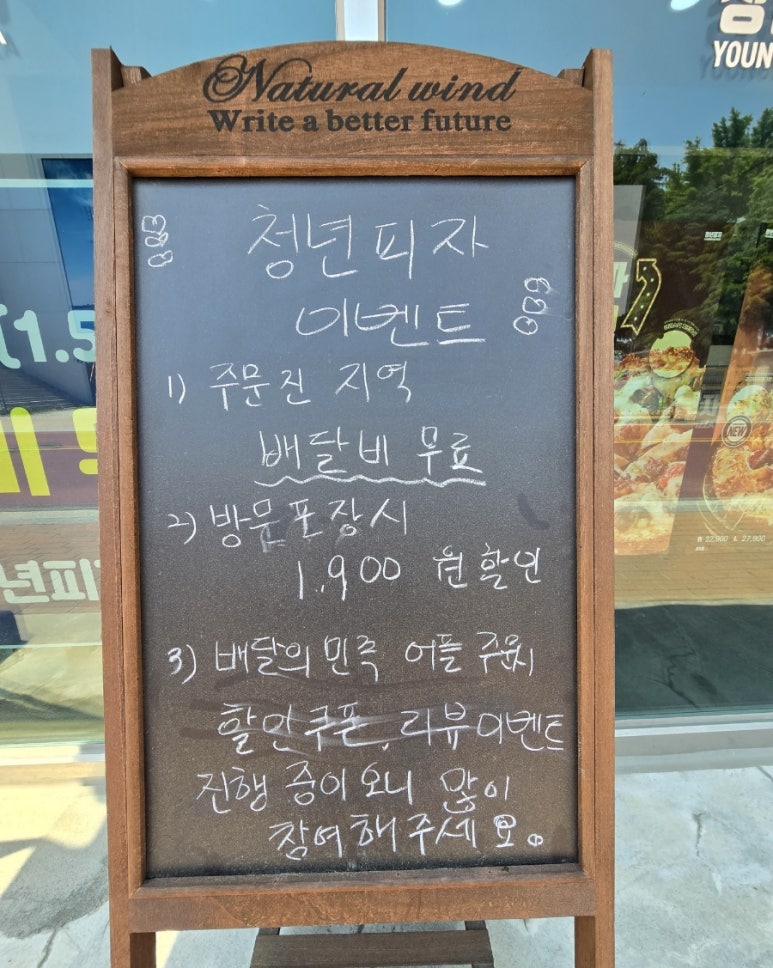 Natural wind
Write a better future
청년피자
이벤트
1) 주문진 지역
배달비 무료
2) 방문포장시
1.900 원 할인
3) 배달의 민족 어플 주문시
할인쿠폰, 리뷰이벤트
진행 중이오니 많이
참여해주세요.
YOUN
(1.5
년피
NEW
R 22,900 L 27,900